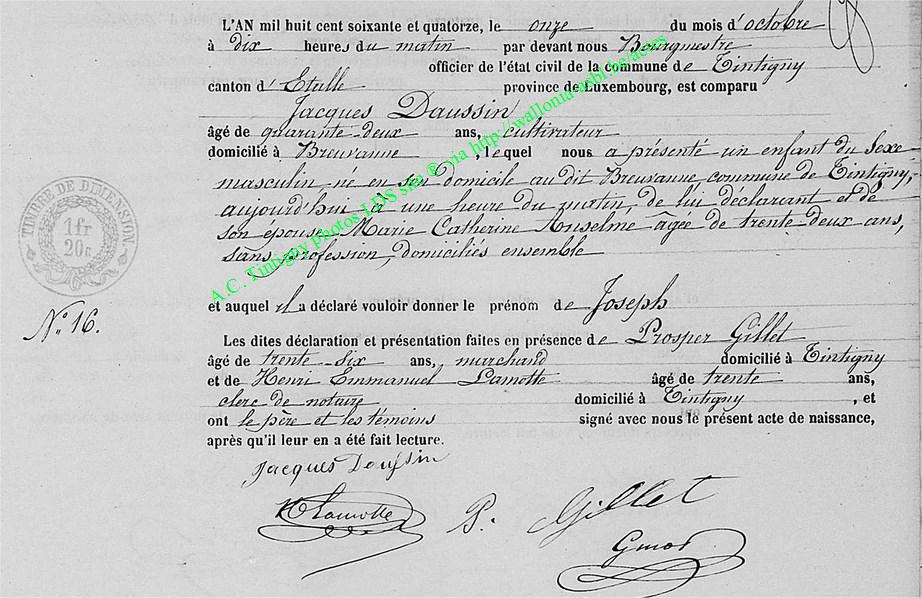 L'AN mil huit cent soixante et quatorze, le onze du mois d'octobre
à dix heures du matin par devant nous Bourgmestre
officier de l'état civil de la commune de Tintigny
canton d'Etalle province de Luxembourg, est comparu
Jacques Daussin
âgé de quarante-deux ans, cultivateur
domicilié à Breuvanne, lequel nous a présenté un enfant du sexe
masculin, né en son domicile au dit Breuvanne, commune de Tintigny,
aujourd'hui à une heure du matin, de lui déclarant et de
son épouse, Marie Catherine Anselme âgée de trente-deux ans,
sans profession, domiciliés ensemble
et auquel il a déclaré vouloir donner le prénom de Joseph
Les dites déclaration et présentation faites en présence de Prosper Gillet
âgé de trente-six ans, marchand domicilié à Tintigny
et de Henri Emmanuel Lamotte âgé de trente ans,
clerc de notaire domicilié à Tintigny, et
ont le père et les témoins signé avec nous le présent acte de naissance,
après qu'il leur en a été fait lecture.
Jacques Daussin
HLamotte P. Gillet
TIMBRE DE DIMENSION.
1fr
20c
N° 16.
A.C. Tintigny photos LDS site ® via http://wallonia-asbl.be/actes